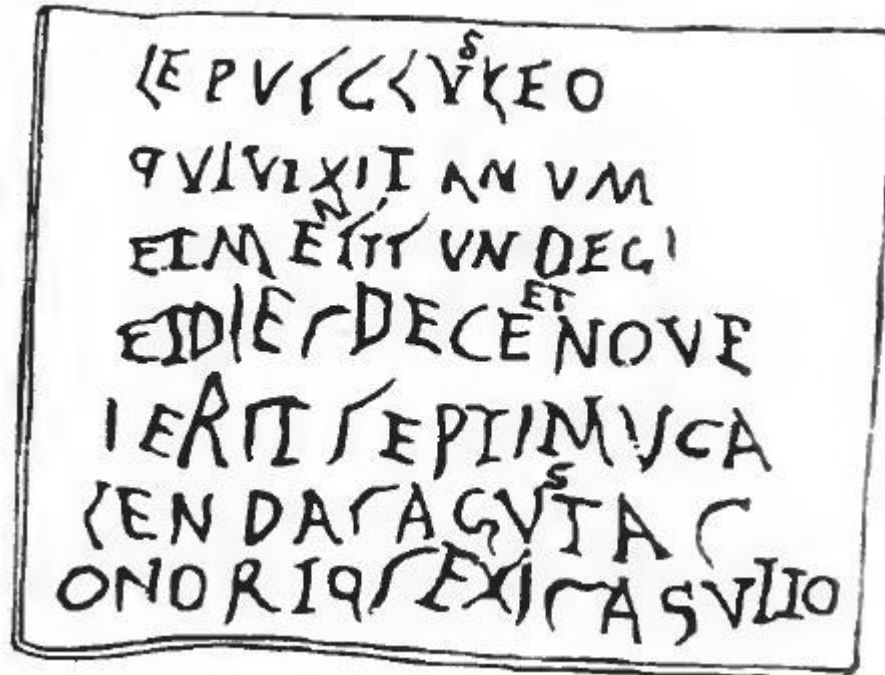 LEPVSCLVSLEO
QVIVIXIT ANVM
ETMENSIS VNDECI
ETDIES DECEETNOVE
IERIT SEPTIMVCA
LENDAS AGVSTAS
ONORIQSEXISASVLIO